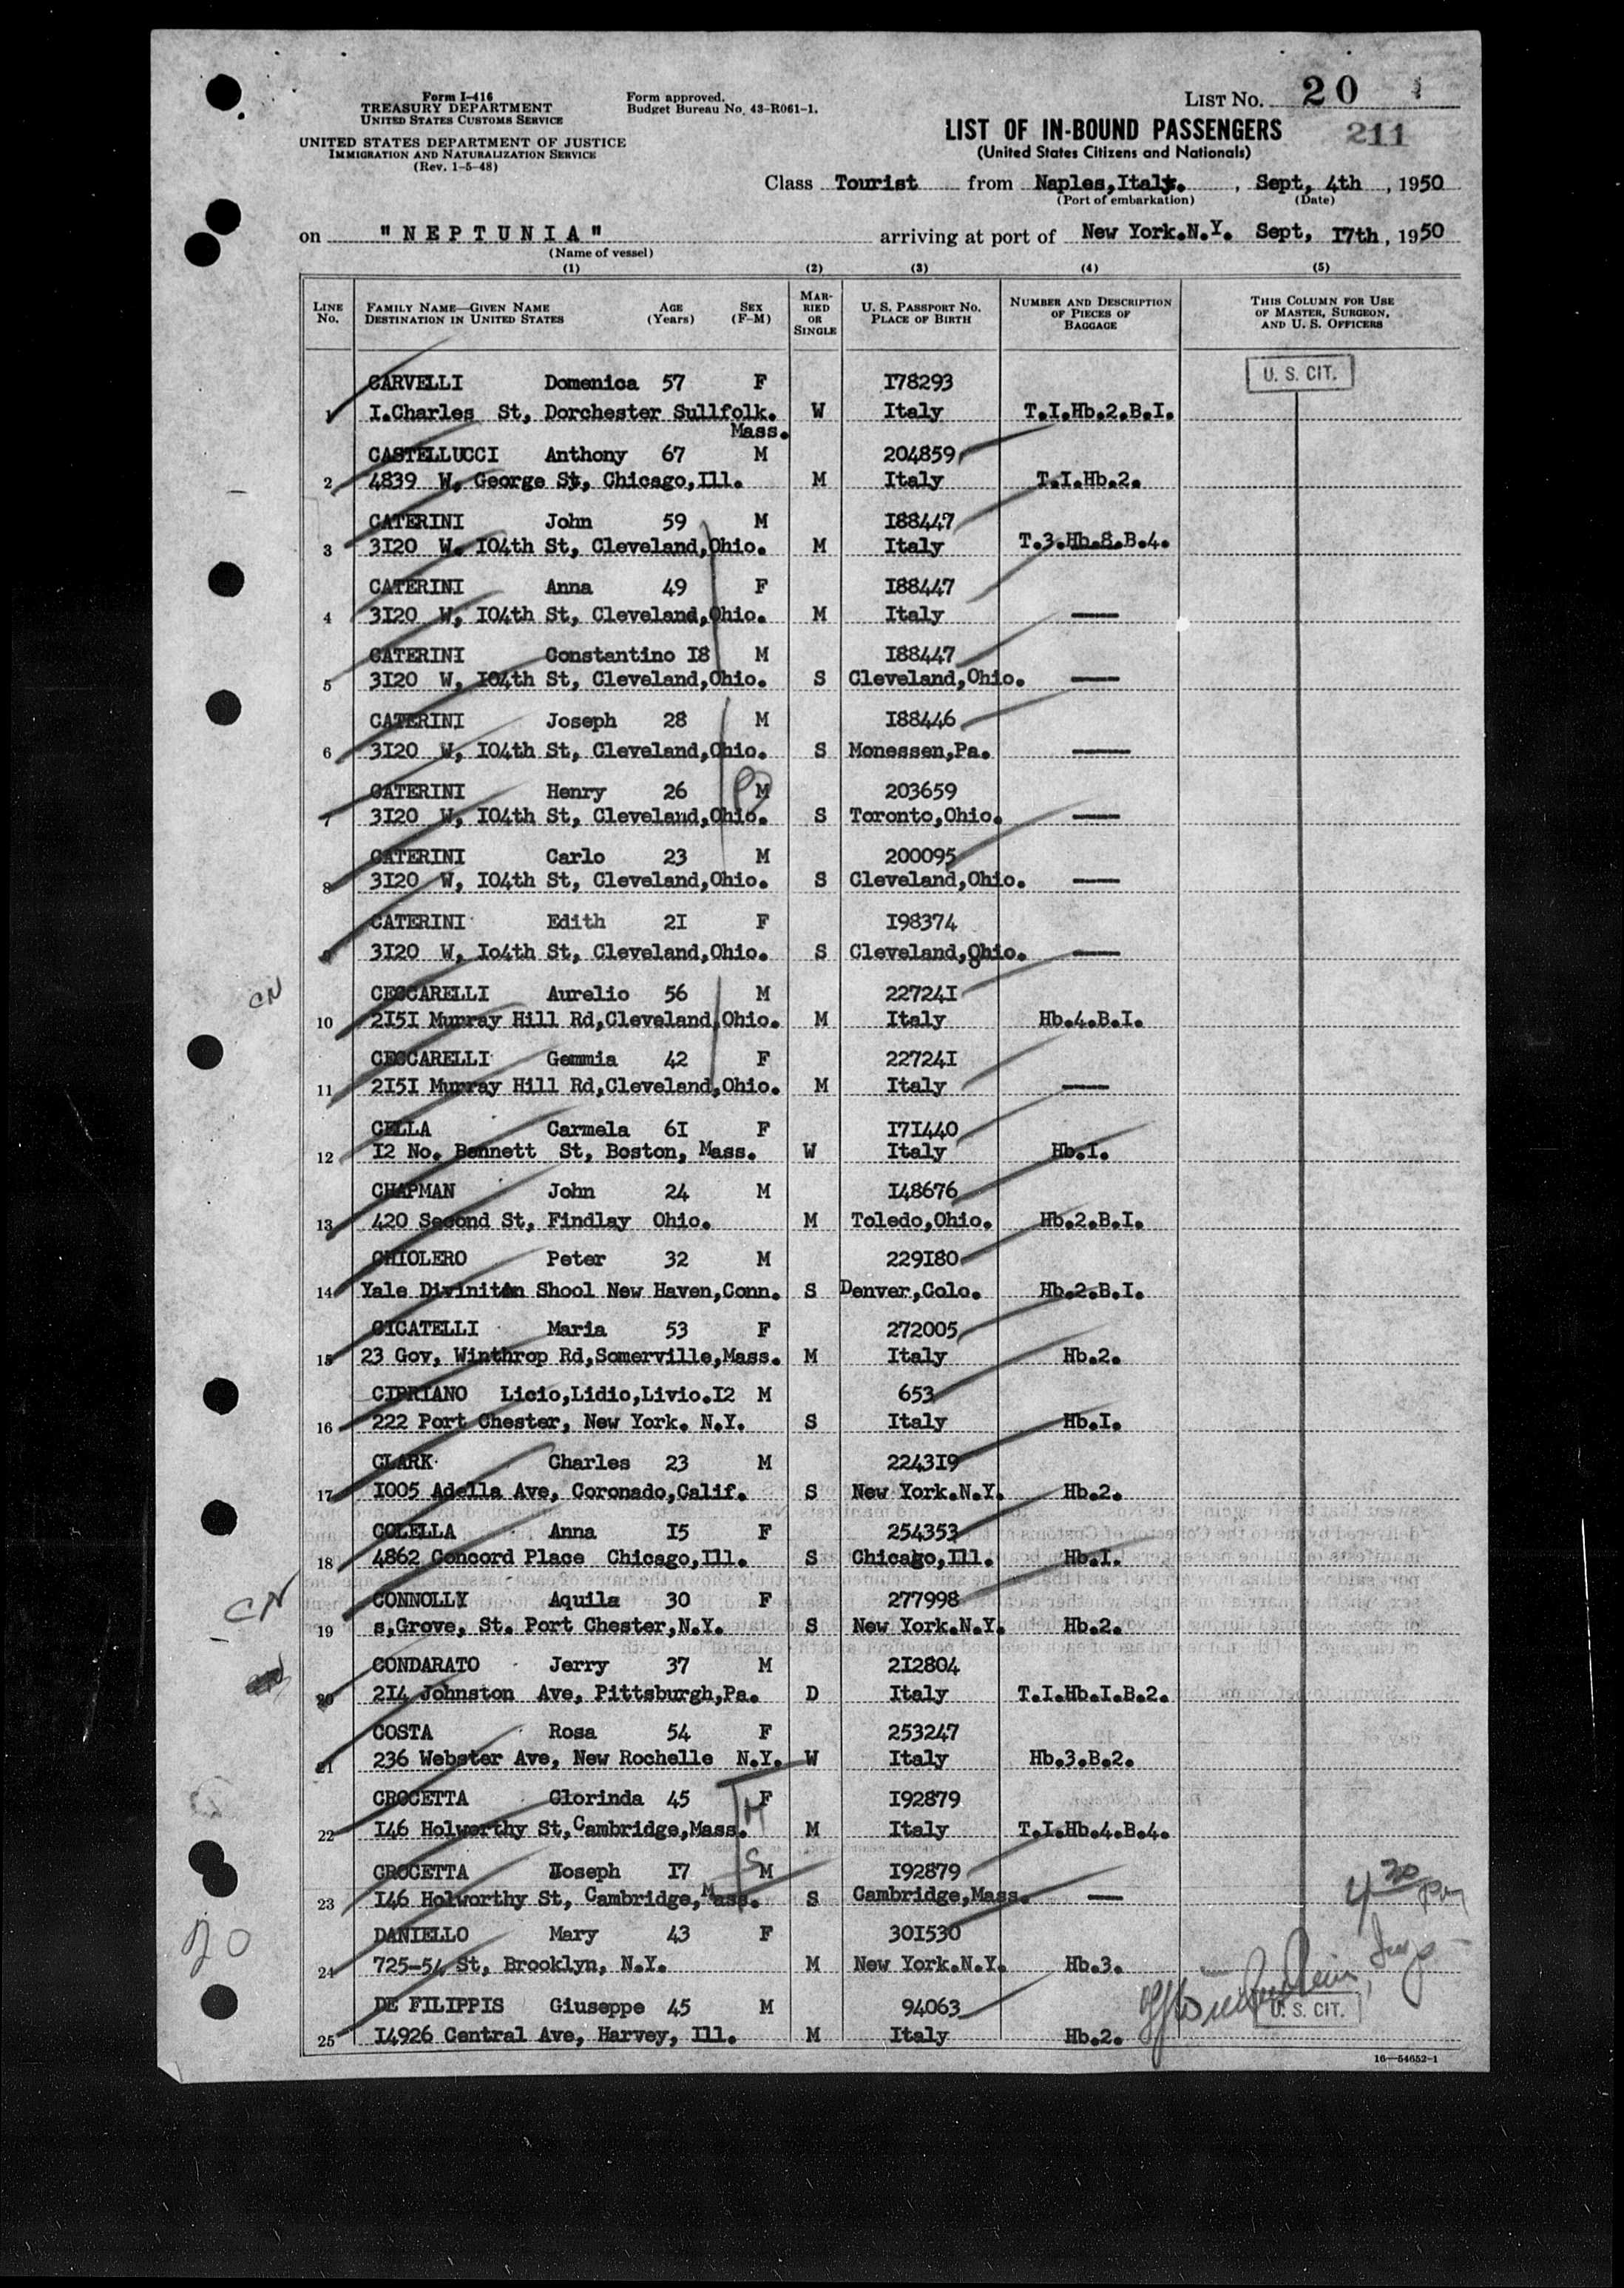 Form I-416
TREASURY DEPARTMENT
UNITED STATES CUSTOMS SERVICE
UNITED STATES DEPARTMENT OF JUSTICE
IMMIGRATION AND NATURALIZATION SERVICE
(Rev. 1-5-48)
Form approved.
Budget Bureau No. 43-R061-1.
LIST NO. 20
211
LIST OF IN-BOUND PASSENGERS
(United States Citizens and Nationals)
Class Tourist from Naples,Italy. , Sept, 4th , 1950
(Port of embarkation) (Date)
on "NEPTUNIA" arriving at port of New York.N.Y. Sept, I7th , 1950
(Name of vessel)
(1) (2) (3) (4) (5)
LINE No. FAMILY NAME—GIVEN NAME DESTINATION IN UNITED STATES AGE (Years) SEX (F-M) MARRIED OR SINGLE U. S. PASSPORT NO. PLACE OF BIRTH NUMBER AND DESCRIPTION OF PIECES OF BAGGAGE THIS COLUMN FOR USE OF MASTER, SURGEON, AND U. S. OFFICERS
CARVELLI Domenica 57 F I78293 U. S. CIT.
1 I.Charles St, Dorchester Sullfolk. W Italy T.I.Hb.2.B.I.
Mass.
CASTELLUCCI Anthony 67 M 204859
2 4839 W, George St, Chicago,Ill. M Italy T.I.Hb.2.
CATERINI John 59 M I88447
3 3I20 W. I04th St, Cleveland,Ohio. M Italy T.3.Hb.8.B.4.
CATERINI Anna 49 F I88447
4 3I20 W, I04th St, Cleveland,Ohio. M Italy —
CATERINI Constantino I8 M I88447
5 3I20 W, I04th St, Cleveland,Ohio. S Cleveland,Ohio. —
CATERINI Joseph 28 M I88446
6 3I20 W, I04th St, Cleveland,Ohio. S Monessen,Pa. —
CATERINI Henry 26 M 203659
7 3I20 W, I04th St, Cleveland,Ohio. S Toronto,Ohio. —
CATERINI Carlo 23 M 200095
8 3I20 W, I04th St, Cleveland,Ohio. S Cleveland,Ohio. —
CATERINI Edith 2I F I98374
9 3I20 W, Io4th St, Cleveland,Ohio. S Cleveland,Ohio. —
CN
CECCARELLI Aurelio 56 M 22724I
10 2I5I Murray Hill Rd,Cleveland,Ohio. M Italy Hb.4.B.I.
CECCARELLI Gemmia 42 F 22724I
11 2I5I Murray Hill Rd,Cleveland,Ohio. M Italy —
CELLA Carmela 6I F I7I440
12 I2 No. Bennett St, Boston, Mass. W Italy Hb.I.
CHAPMAN John 24 M I48676
13 420 Second St, Findlay Ohio. M Toledo,Ohio. Hb.2.B.I.
CHIOLERO Peter 32 M 229I80
14 Yale Diviniton Shool New Haven,Conn. S Denver,Colo. Hb.2.B.I.
CICATELLI Maria 53 F 272005
15 23 Gov, Winthrop Rd,Somerville,Mass. M Italy Hb.2.
CIPRIANO Licio,Lidio,Livio.I2 M 653
16 222 Port Chester, New York. N.Y. S Italy Hb.I.
CLARK Charles 23 M 2243I9
17 I005 Adella Ave, Coronado,Calif. S New York.N.Y. Hb.2.
COLELLA Anna I5 F 254353
18 4862 Concord Place Chicago,Ill. S Chicago,Ill. Hb.I.
CN
CONNOLLY Aquila 30 F 277998
19 s,Grove, St. Port Chester,N.Y. S New York.N.Y. Hb.2.
CONDARATO Jerry 37 M 2I2804
20 2I4 Johnston Ave, Pittsburgh,Pa. D Italy T.I.Hb.I.B.2.
COSTA Rosa 54 F 253247
21 236 Webster Ave, New Rochelle N.Y. W Italy Hb.3.B.2.
CROCETTA Clorinda 45 F I92879
22 I46 Holworthy St,Cambridge,Mass. M Italy T.I.Hb.4.B.4.
CROCETTA Joseph I7 M I92879
23 I46 Holworthy St, Cambridge,Mass. S Cambridge,Mass. —
4 30 pm
20
DANIELLO Mary 43 F 30I530
24 725-54 St, Brooklyn, N.Y. M New York.N.Y. Hb.3.
DE FILIPPIS Giuseppe 45 M 94063 U. S. CIT.
25 I4926 Central Ave, Harvey, Ill. M Italy Hb.2.
16—54652-1